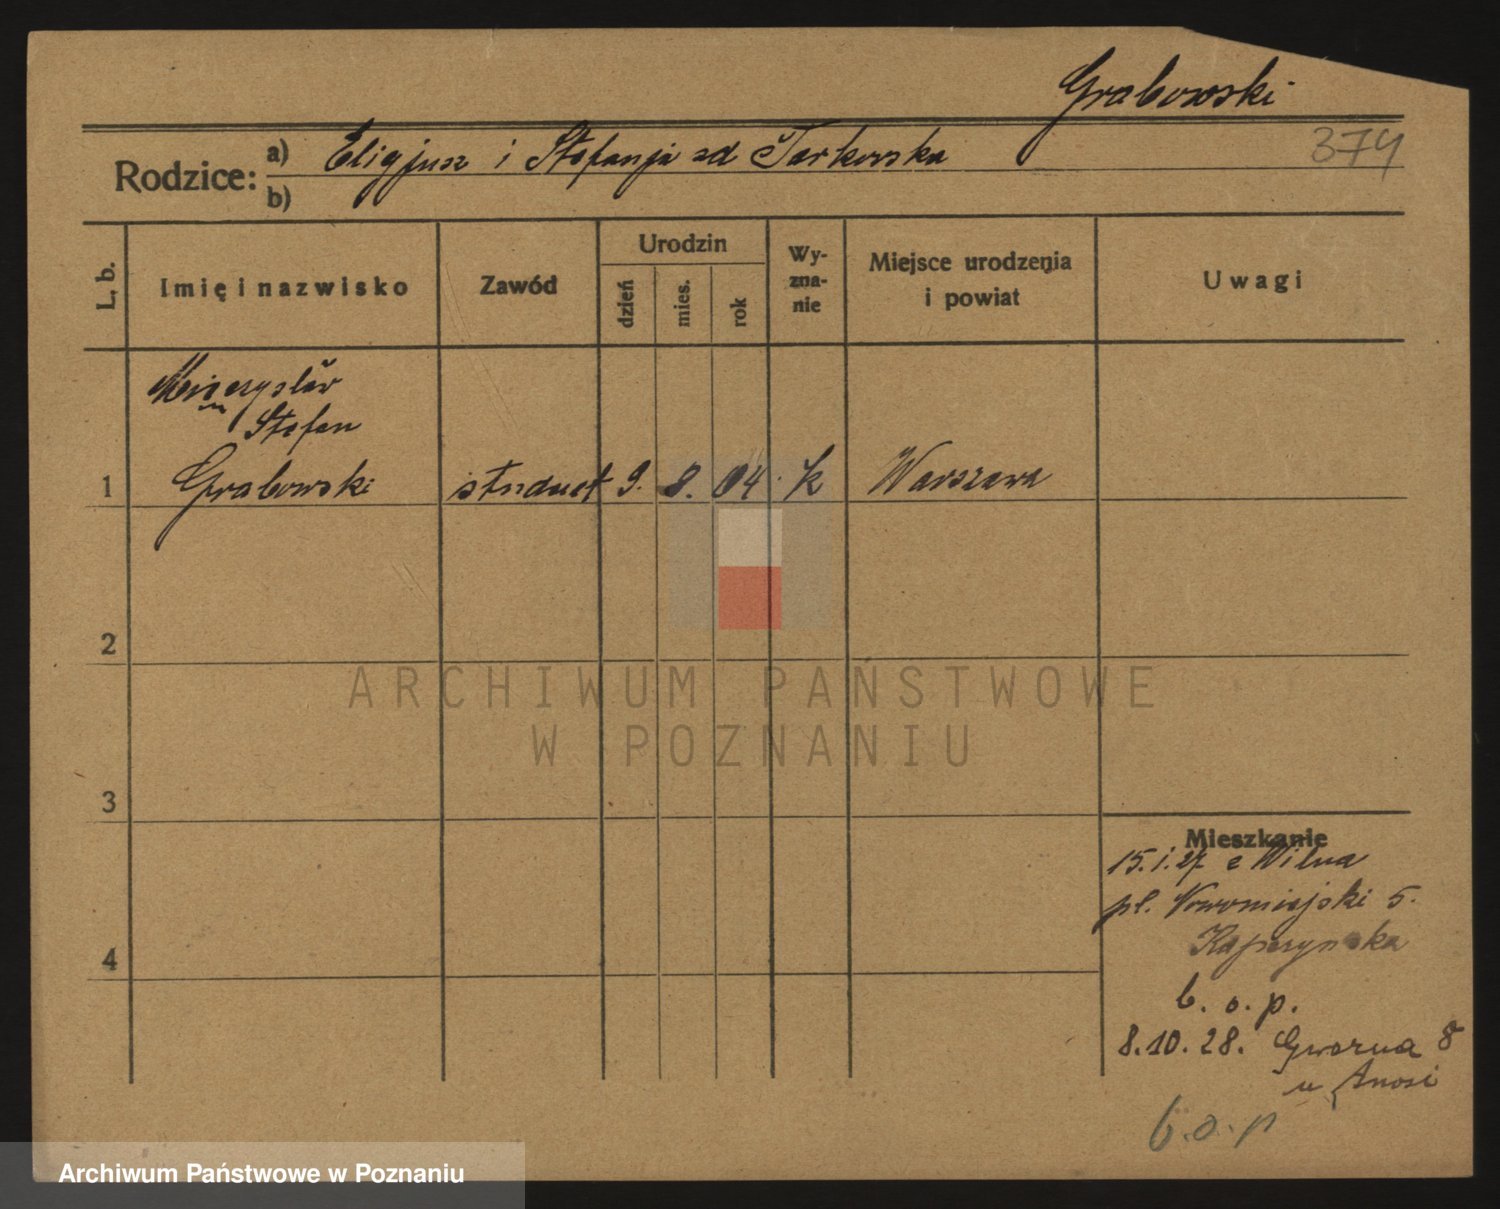 Grabowski
374
Rodzice: a) Eligjusz i Stefanja zd Tarkowska
b)
L. b.
Imię i nazwisko
Zawód
Urodzin
dzień
mies.
rok
Wy-
zna-
nie
Miejsce urodzenia
i powiat
Uwagi
Mieczysław
Stefan
1 Grabowski student 9. 8. 04. k Warszawa
2
3
4
Mieszkanie
15.1.27 z Wilna
pl. Nowomiejski 5.
b. o. p.
8.10.28. Gwarna 8
u
b.o.p
ARCHIWUM PAŃSTWOWE
W POZNANIU
Archiwum Państwowe w Poznaniu